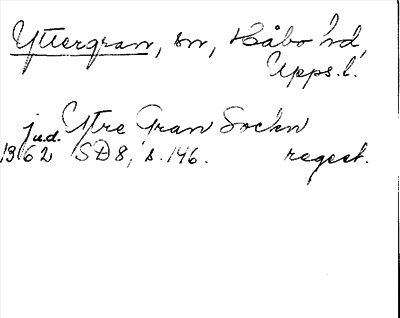 Yttergran, sn, Håbo hd,
Upps. l.
j u.d. Yttre Gran Sockn
1362 SD 8, s. 146. regest.